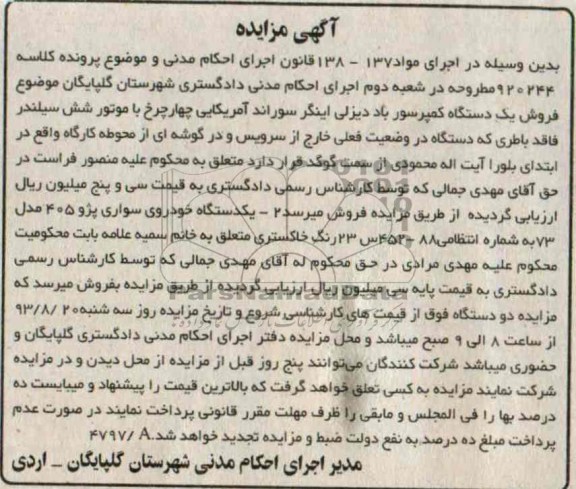 آگهی مزایده
بدین وسیله در اجرای مواد۱۳۷ - ۱۳۸قانون اجرای احکام مدنی و موضوع پرونده کلاسه
۹۲۰۲۴۴مطروحه در شعبه دوم اجرای احکام مدنی دادگستری شهرستان گلپایگان موضوع
فروش یک دستگاه کمپرسور باد دیزلی اینگر سوراند آمریکایی چهارچرخ با موتور شش سیلندر
فاقد باطری که دستگاه در وضعیت فعلی خارج از سرویس و در گوشه ای از محوطه کارگاه واقع در
ابتدای بلورا آیت اله محمودی از سمت گوگد قرار دارد متعلق به محکوم علیه منصور فراست در
حق آقای مهدی جمالی که توسط کارشناس رسمی دادگستری به قیمت سی و پنج میلیون ریال
ارزیابی گردیده از طریق مزایده فروش میرسد۲ - یکدستگاه خودروی سواری پژو ۴۰۵ مدل
۷۳به شماره انتظامی۸۸ -۴۵۲س ۲۳رنگ خاکستری متعلق به خانم سمیه علامه بابت محکومیت
محکوم علیه مهدی مرادی در حق محکوم له آقای مهدی جمالی که توسط کارشناس رسمی
دادگستری به قیمت پایه سی میلیون ریال ارزیابی گردیده از طریق مزایده بفروش میرسد که
مزایده دو دستگاه فوق از قیمت های کارشناسی شروع و تاریخ مزایده روز سه شنبه۹۳/۸/۲۰
از ساعت ۸ الی ۹ صبح میباشد و محل مزایده دفتر اجرای احکام مدنی دادگستری گلپایگان و
حضوری میباشد شرکت کنندگان می‌توانند پنج روز قبل از مزایده از محل دیدن و در مزایده
شرکت نمایند مزایده به کسی تعلق خواهد گرفت که بالاترین قیمت را پیشنهاد و میبایست ده
درصد بها را فی المجلس و مابقی را ظرف مهلت مقرر قانونی پرداخت نمایند در صورت عدم
پرداخت مبلغ ده درصد به نفع دولت ضبط و مزایده تجدید خواهد شد.۴۷۹۷/A
مدیر اجرای احکام مدنی شهرستان گلپایگان _ اردی
ParsNamadData